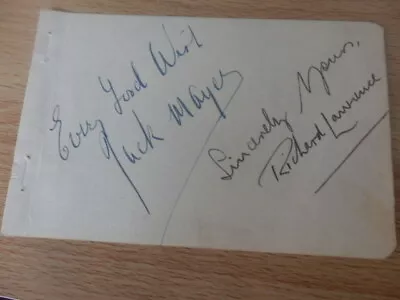 Every Good Wish
Jack Mayer
Sincerely Yours,
Richard Lawrence